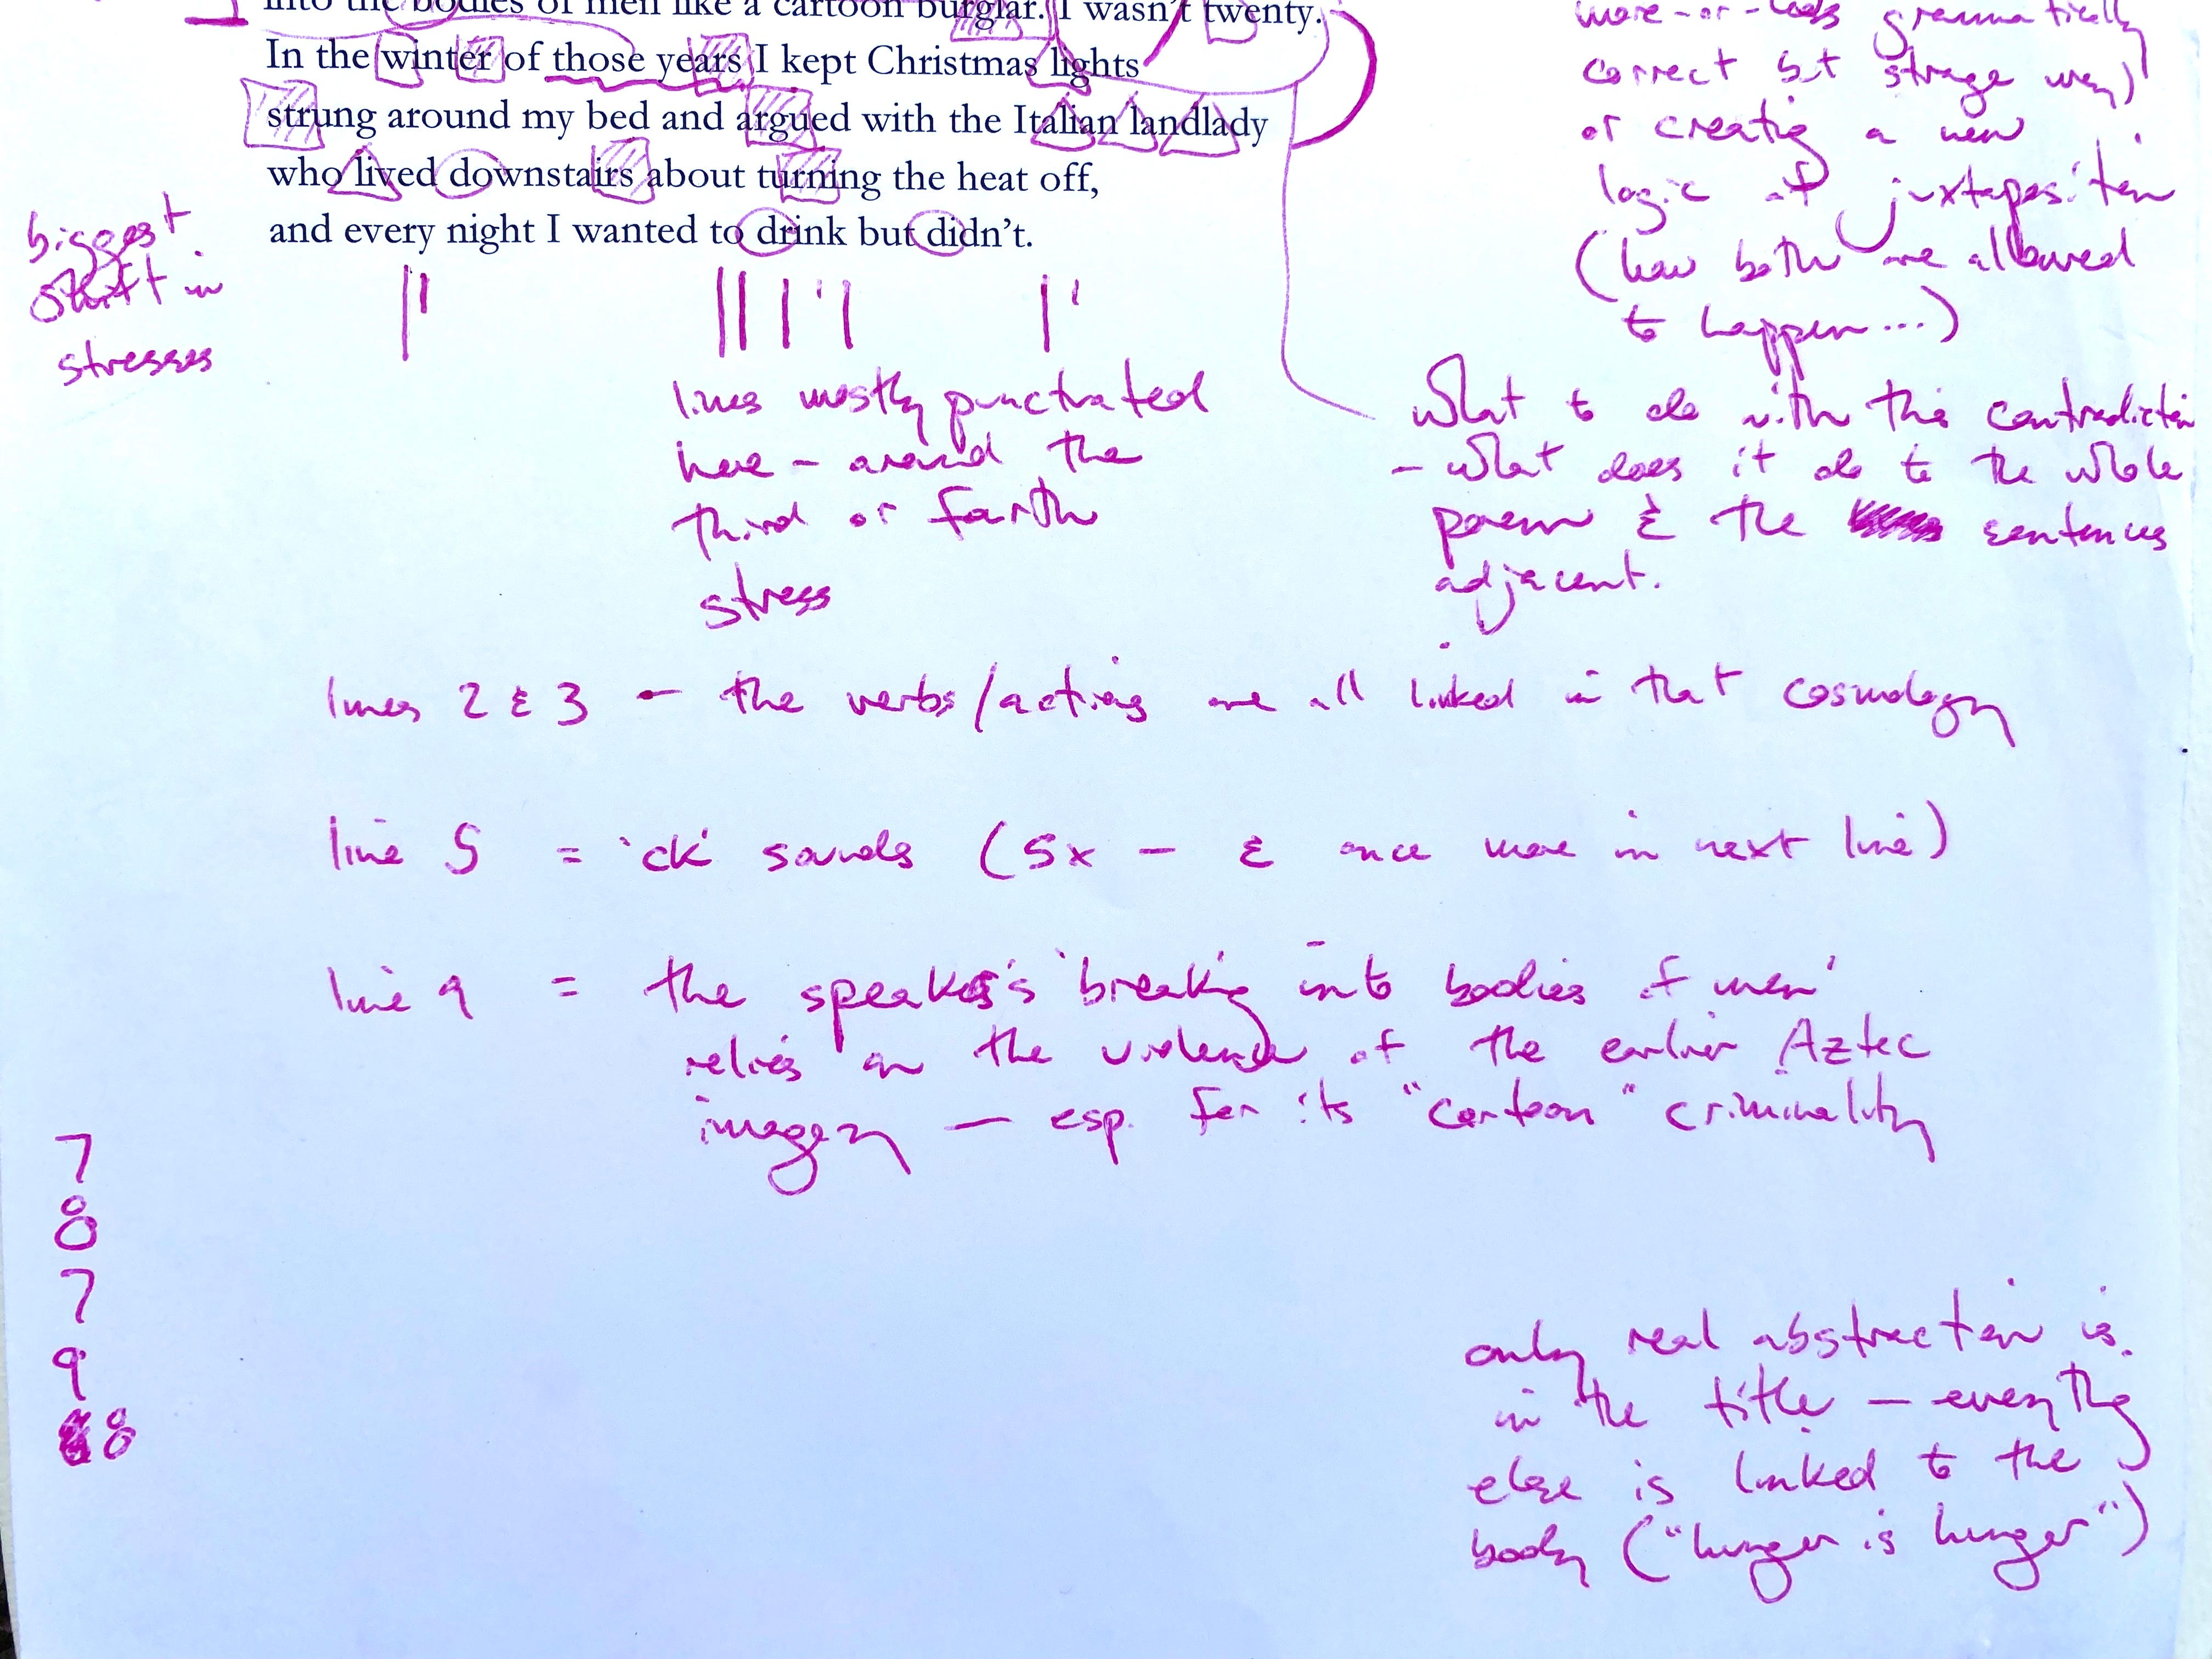 into the bodies of men like a cartoon burglar. I wasn't twenty.
In the winter of those years I kept Christmas lights
strung around my bed and argued with the Italian landlady
who lived downstairs about turning the heat off,
and every night I wanted to drink but didn't.
more-or-less grammatically
correct but strange way)
or creating a new
logic of juxtaposition
(how both are allowed
to happen...)
biggest
shift in
stresses
lines mostly punctuated
here – around the
third or fourth
stress
what to do with this contradiction
– what does it do to the whole
poem & the sentences
adjacent.
lines 2 & 3 – the verbs/actions are all linked in that cosmology
line 5 = 'ck' sounds (5x – & once more in next line)
line 9 = the speaker's 'breaking into bodies of men'
relies on the violence of the earlier Aztec
imagery – esp. for its "cartoon" criminality
7
8
7
9
8
only real abstraction is
in the title – everything
else is linked to the
body ("hunger is hunger")